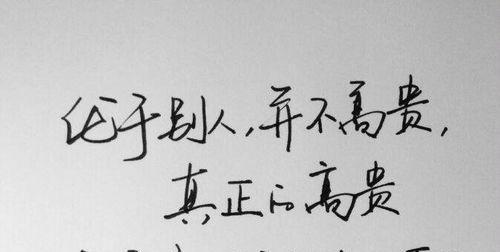 优于别人,并不高贵,
真正的高贵